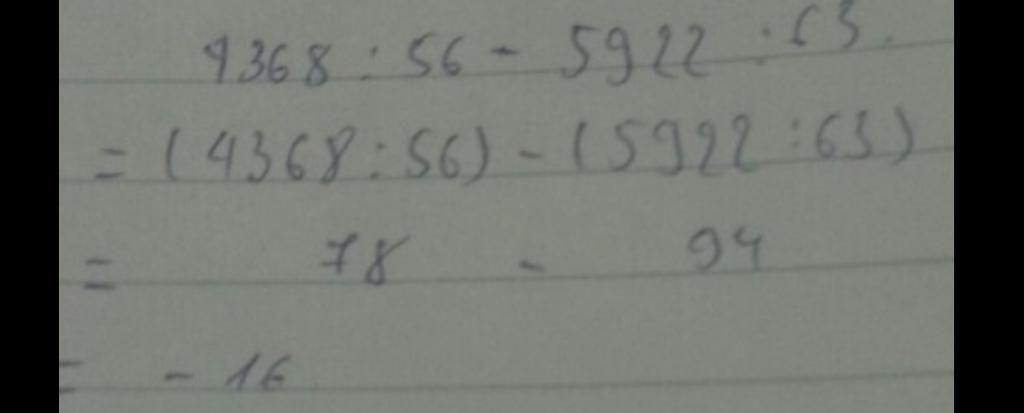 4368 : 56 - 5922 : 63.
= (4368 : 56) - (5922 : 63)
= 78 - 94
= - 16